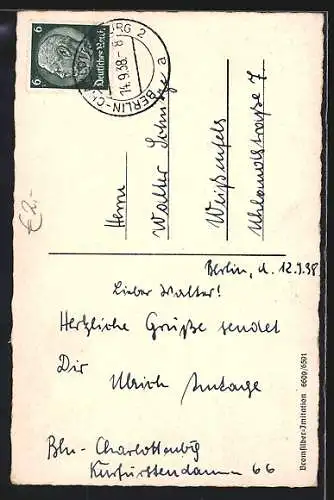 6 Deutsches Reich 6
BERLIN-CH
BURG 2
14.9.38-8
a
Herrn
Walter
Weißenfels
Uhlandstraße 7
€ 2,-
Berlin, d. 12.9.38
Lieber Walter!
Herzliche Grüße sendet
Dir
Ulrich
Bln- Charlottenbg
Kurfürstendamm 66
Bromsilber-Imitation 6600/6501